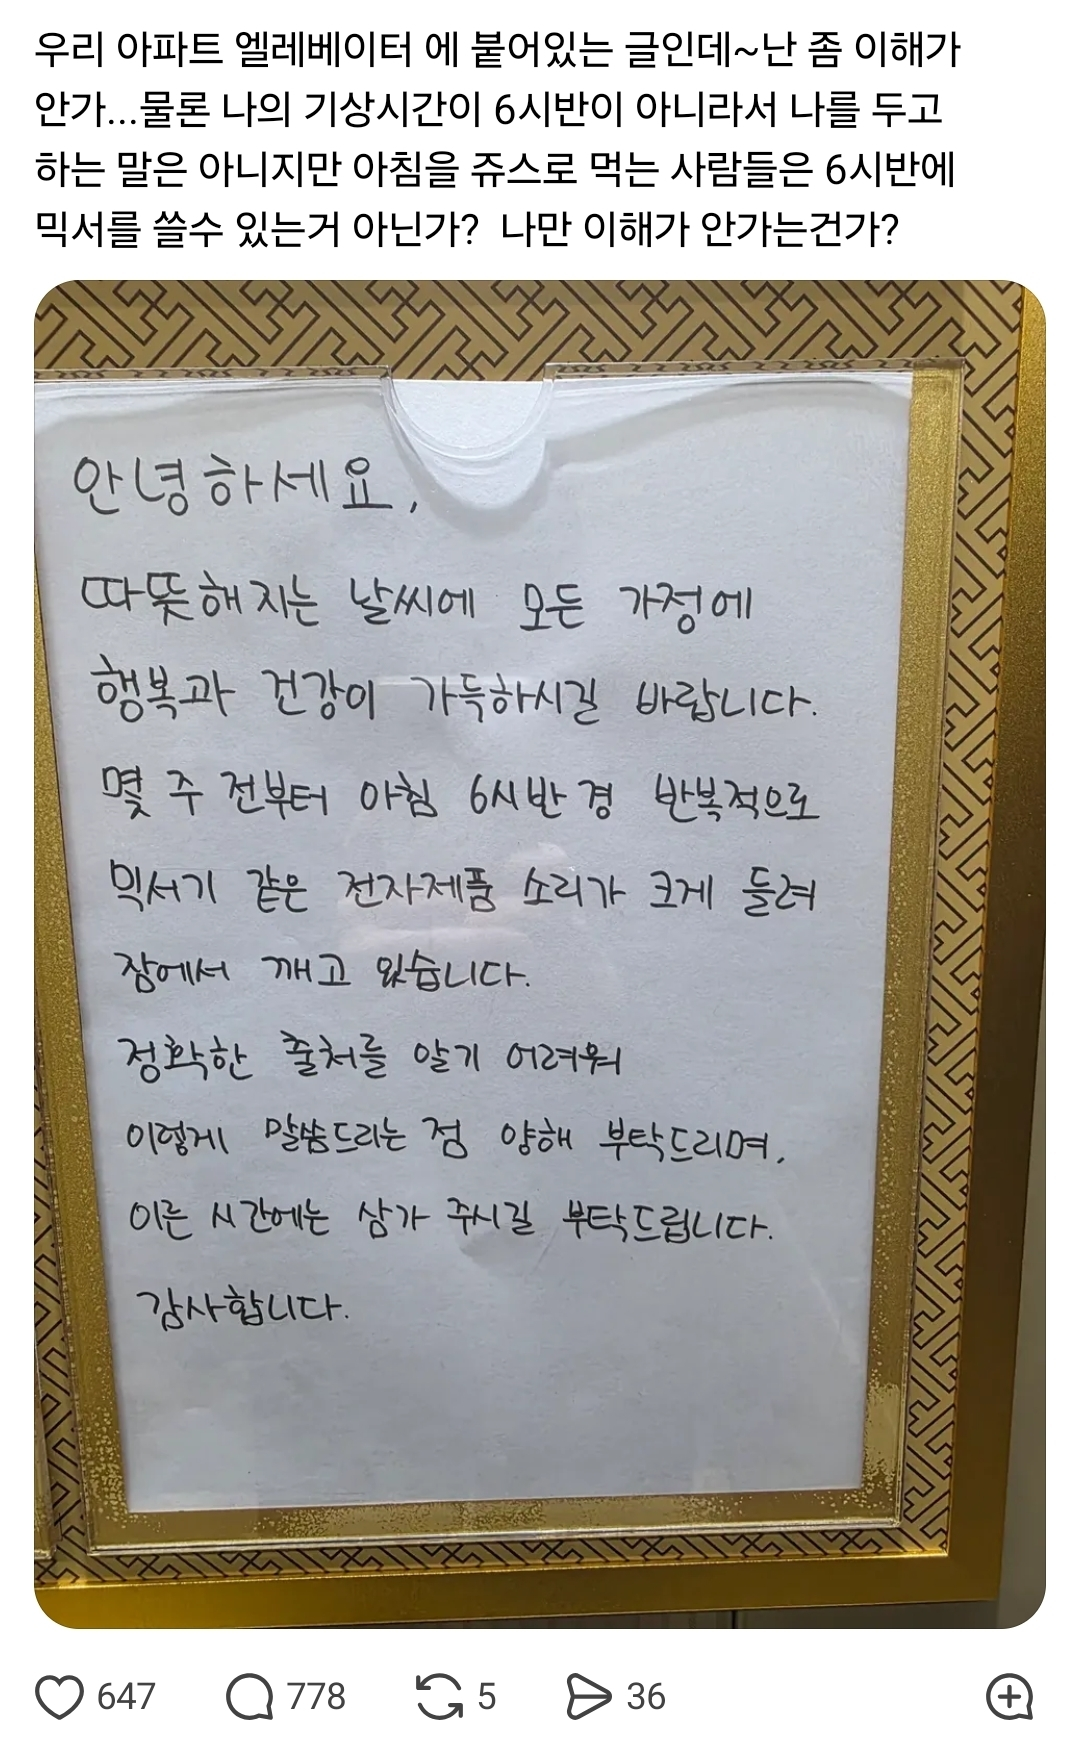 우리 아파트 엘레베이터 에 붙어있는 글인데~난 좀 이해가
안가...물론 나의 기상시간이 6시반이 아니라서 나를 두고
하는 말은 아니지만 아침을 쥬스로 먹는 사람들은 6시반에
믹서를 쓸수 있는거 아닌가? 나만 이해가 안가는건가?
안녕하세요,
따뜻해지는 날씨에 모든 가정에
행복과 건강이 가득하시길 바랍니다.
몇 주 전부터 아침 6시반 경 반복적으로
믹서기 같은 전자제품 소리가 크게 들려
잠에서 깨고 있습니다.
정확한 출처를 알기 어려워
이렇게 말씀드리는 점 양해 부탁드리며,
이른 시간에는 삼가 주시길 부탁드립니다.
감사합니다.
647 778 5 36